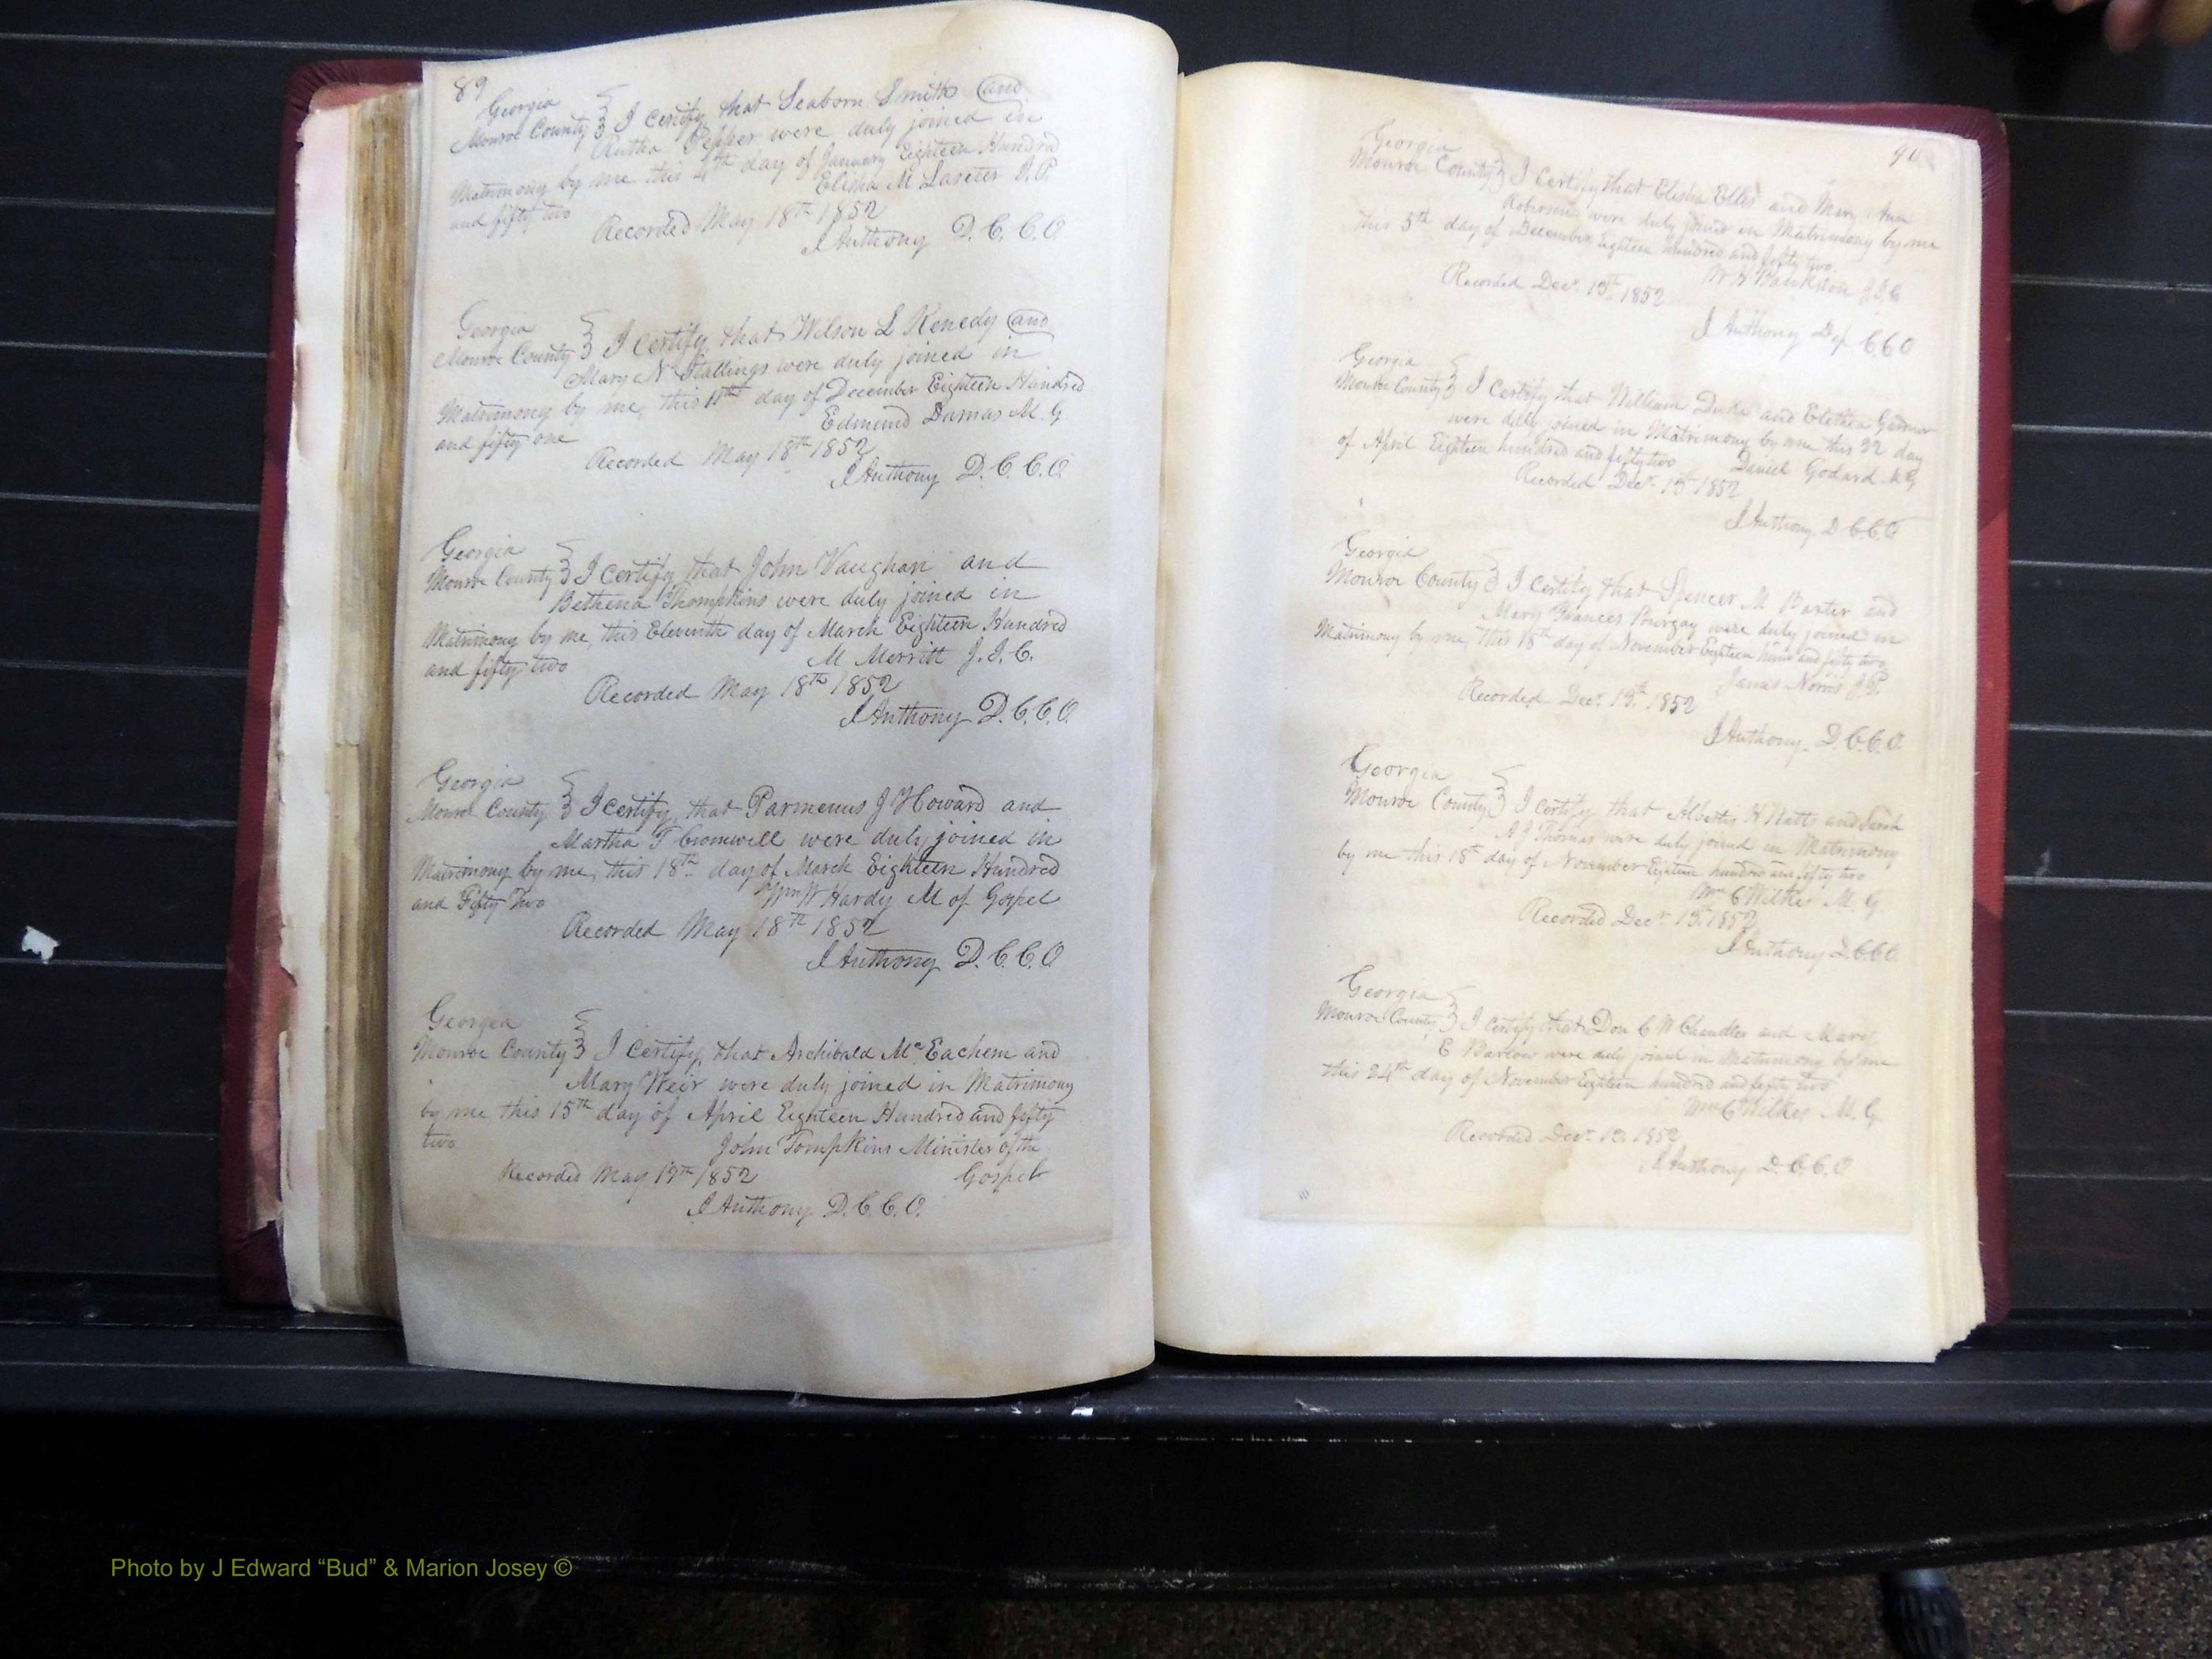 89
Georgia
Monroe County } I certify that Seaborn Smith and
Rutha Pepper were duly joined in
Matrimony by me this 4th day of January Eighteen Hundred
and fifty two Elisha M Laseter J. P.
Recorded May 18th 1852
J Anthony D. C. C. O.
Georgia
Monroe County } I certify that Wilson L Kenedy and
Mary N Stallings were duly joined in
Matrimony by me, this 11th day of December Eighteen Hundred
and fifty one Edmund Dumas M. G
Recorded May 18th 1852
J Anthony D. C. C. O.
Georgia
Monroe County } I certify that John Vaughan and
Bethena Thompkins were duly joined in
Matrimony by me, this Eleventh day of March Eighteen Hundred
and fifty two M Merritt J. I. C.
Recorded May 18th 1852
J Anthony D. C. C. O.
Georgia
Monroe County } I certify, that Parmenus J Howard and
Martha T Cromwell were duly joined in
Matrimony by me, this 18th day of March Eighteen Hundred
and Fifty Two Wm W Hardy M of Gospel
Recorded May 18th 1852
J Anthony D. C. C. O
Georgia
Monroe County } I certify, that Archibald McEachern and
Mary Weir were duly joined in Matrimony
by me this 15th day of April Eighteen Hundred and fifty
two John Tompkins Minister of the
Recorded May 19th 1852 Gospel
J Anthony D. C. C. O.
90
Georgia
Monroe County } I certify that Elisha Elles and Mary Ann
Roberson were duly joined in Matrimony by me
this 5th day of December, Eighteen hundred and fifty two.
W H Bankston J I C
Recorded Decr. 13th 1852
J Anthony Dep C C O
Georgia
Monroe County } I certify that William Duke and Elethea
were duly joined in Matrimony by me this 22 day
of April Eighteen hundred and fifty two Daniel Godard M G
Recorded Decr. 13th 1852
J Anthony D C C O
Georgia
Monroe County } I certify that Spencer M Baxter and
Mary Frances were duly joined in
Matrimony by me, this 18th day of November Eighteen hund and fifty two
James Norris J. P.
Recorded Decr. 13th 1852
J Anthony D. C. C. O.
Georgia
Monroe County } I certify that H and Sarah
A J Thomas were duly joined in Matrimony
by me this 18th day of November Eighteen hundred and fifty two
Wm C Wilkes M. G.
Recorded Decr. 13. 1852
J Anthony D. C. C. O.
Georgia
Monroe County } I certify that Don C W Chandler and Mary
E Barlow were duly joined in Matrimony by me
this 24th day of November Eighteen hundred and fifty two
Wm C Wilkes M. G
Recorded Decr. 13. 1852
J Anthony D. C. C. O
Photo by J Edward “Bud” & Marion Josey ©